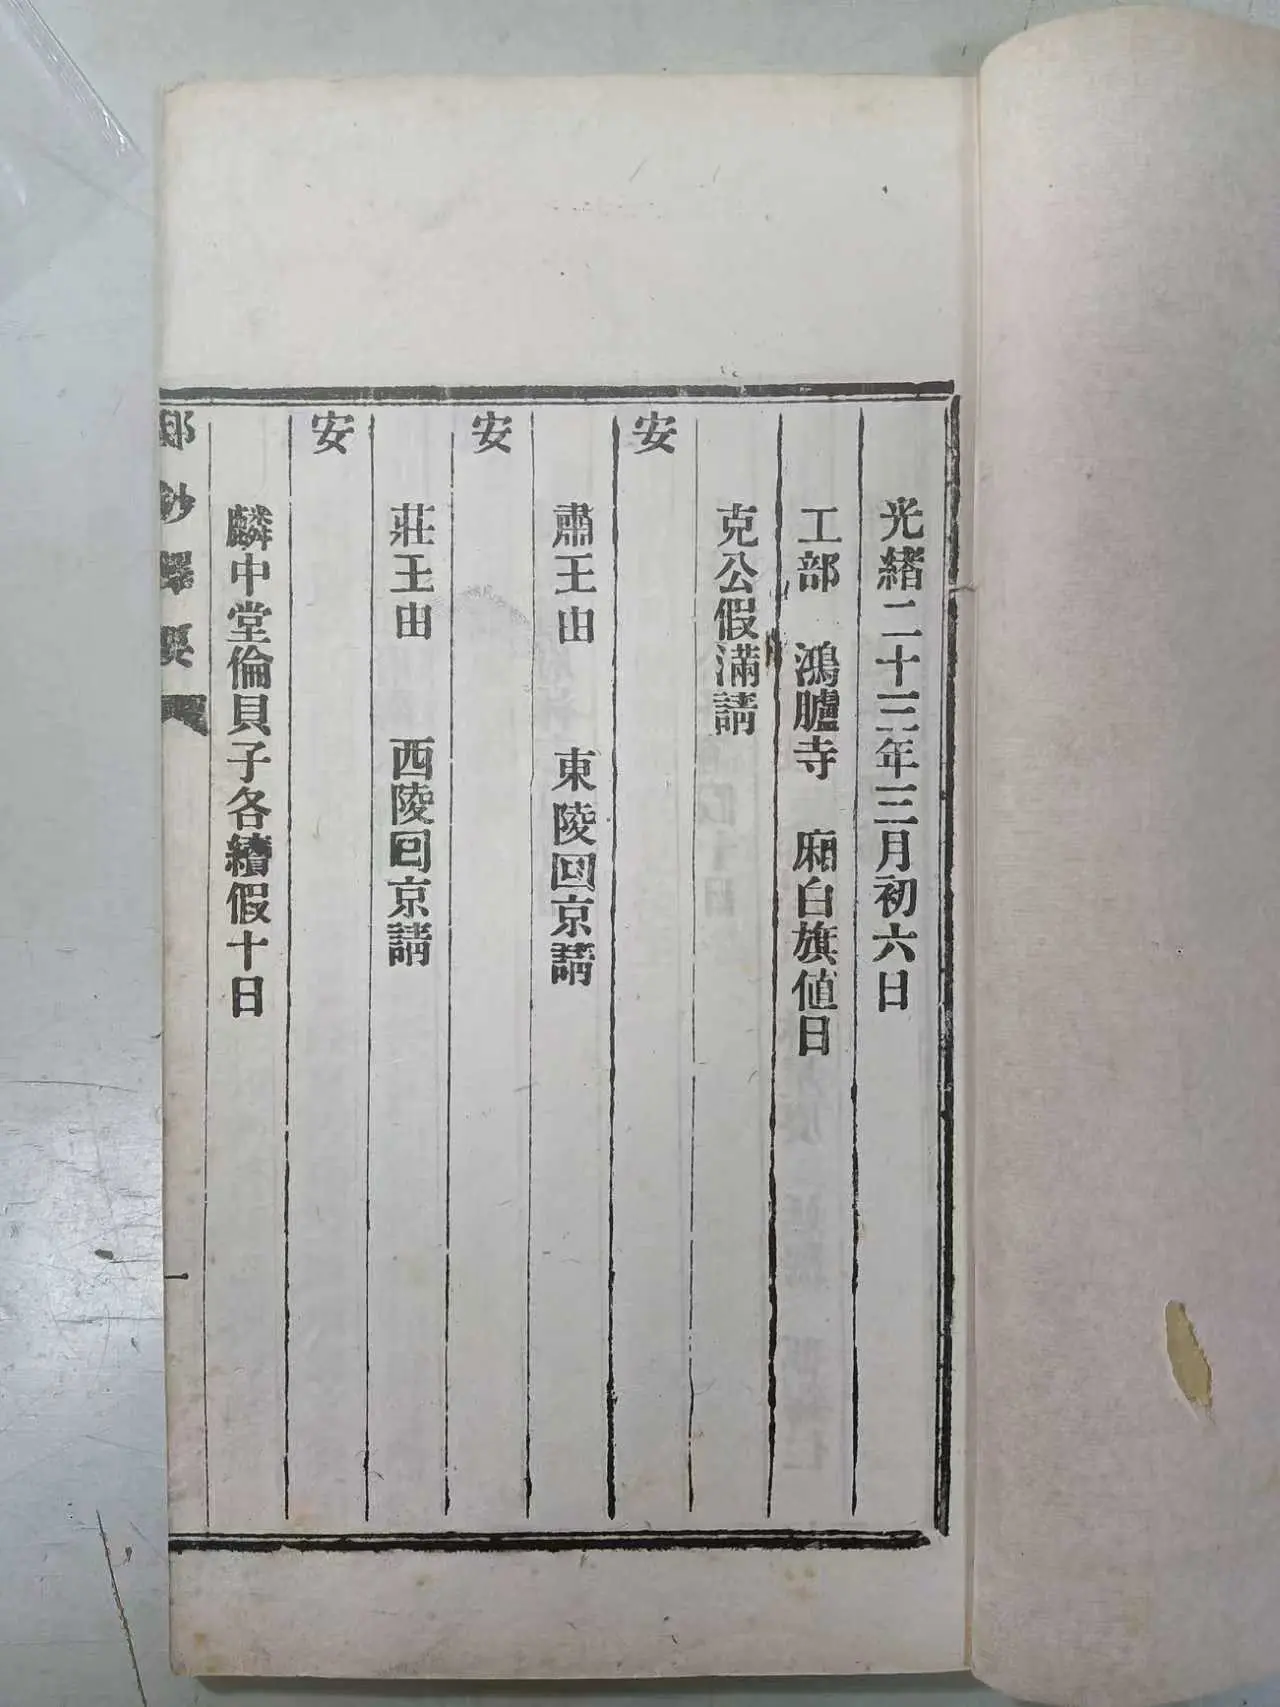 光緒二十三年三月初六日
工部 鴻臚寺 廂白旗値日
克公假滿請
安
肅王由 東陵回京請
安
莊王由 西陵回京請
安
麟中堂倫貝子各續假十日
邸鈔擇要
一